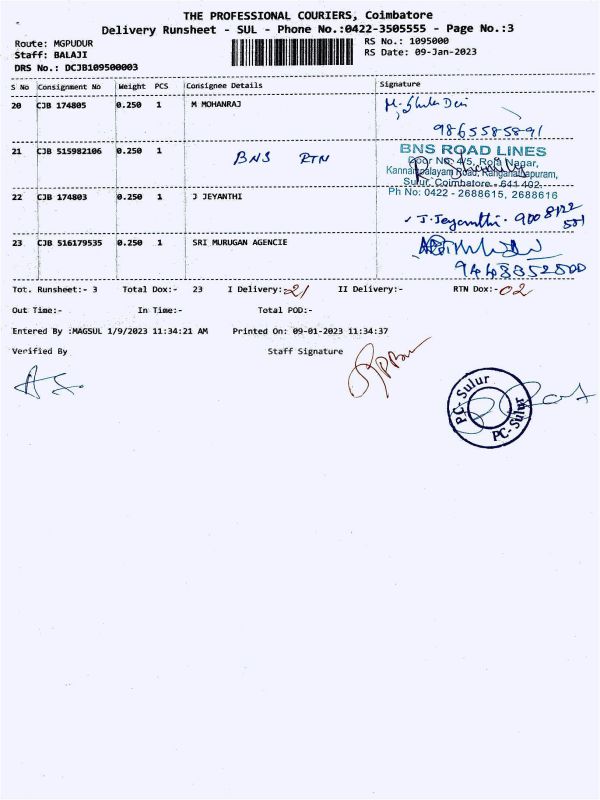 THE PROFESSIONAL COURIERS, Coimbatore
Delivery Runsheet - SUL - Phone No.:0422-3505555 - Page No.:3
Route: MGPUDUR
RS No.: 1095000
Staff: BALAJI
RS Date: 09-Jan-2023
DRS No.: DCJB109500003
S No Consignment No Weight PCS Consignee Details Signature
20 CJB 174805 0.250 1 M MOHANRAJ
9865585891
21 CJB 515982106 0.250 1 BNS RTN
BNS ROAD LINES
Door No. 4/5, Roja Nagar,
Kannampalayam Road, Ranganathapuram,
Sulur, Coimbatore - 641 402.
Ph No: 0422 - 2688615, 2688616
22 CJB 174803 0.250 1 J JEYANTHI
J. Jeyanthi. 9008122
501
23 CJB 516179535 0.250 1 SRI MURUGAN AGENCIE
9448352500
Tot. Runsheet:- 3 Total Dox:- 23 I Delivery:- 21 II Delivery:- RTN Dox:- 02
Out Time:- In Time:- Total POD:-
Entered By :MAGSUL 1/9/2023 11:34:21 AM Printed On: 09-01-2023 11:34:37
Verified By Staff Signature
PC- Sulur
PC- Sulur